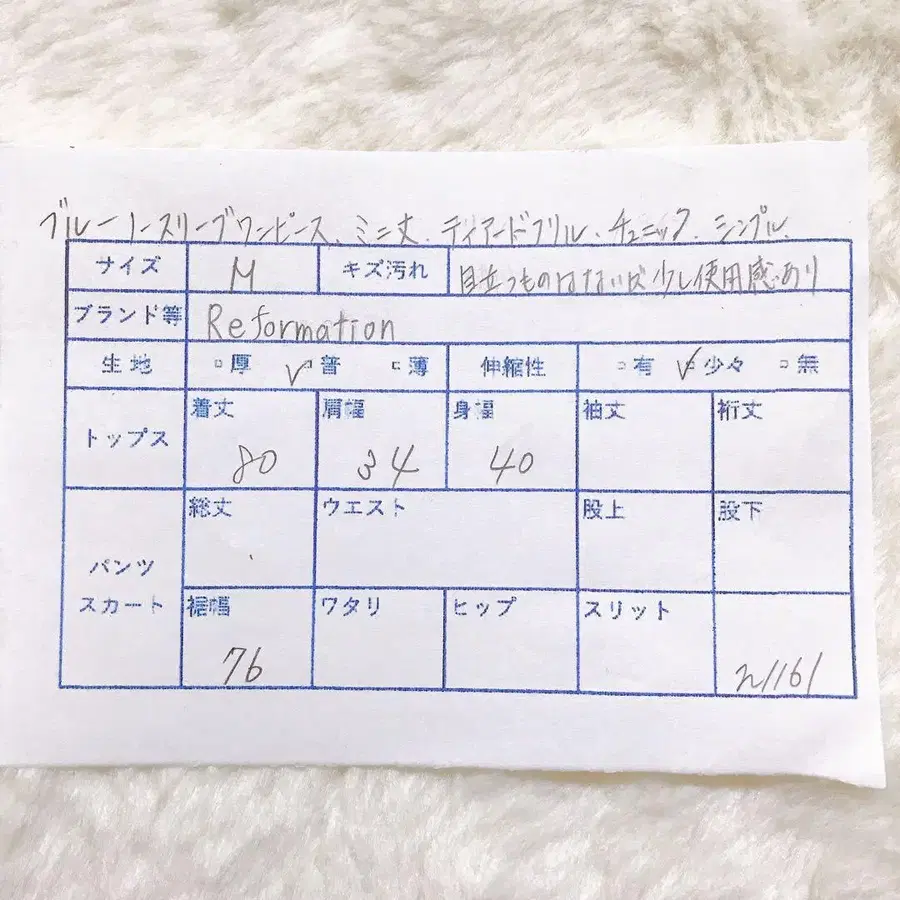 ブルーノースリーブワンピース、ミニ丈、ティアードフリル、チュニック、シンプル、
サイズ M キズ汚れ 目立つものはないが少し使用感あり
ブランド等 Reformation
生地 □厚 ✓□普 □薄 伸縮性 □有 ✓□少々 □無
トップス 着丈 肩幅 身幅 袖丈 裄丈
80 34 40
パンツ スカート 総丈 ウエスト 股上 股下
裾幅 ワタリ ヒップ スリット
76 n1161